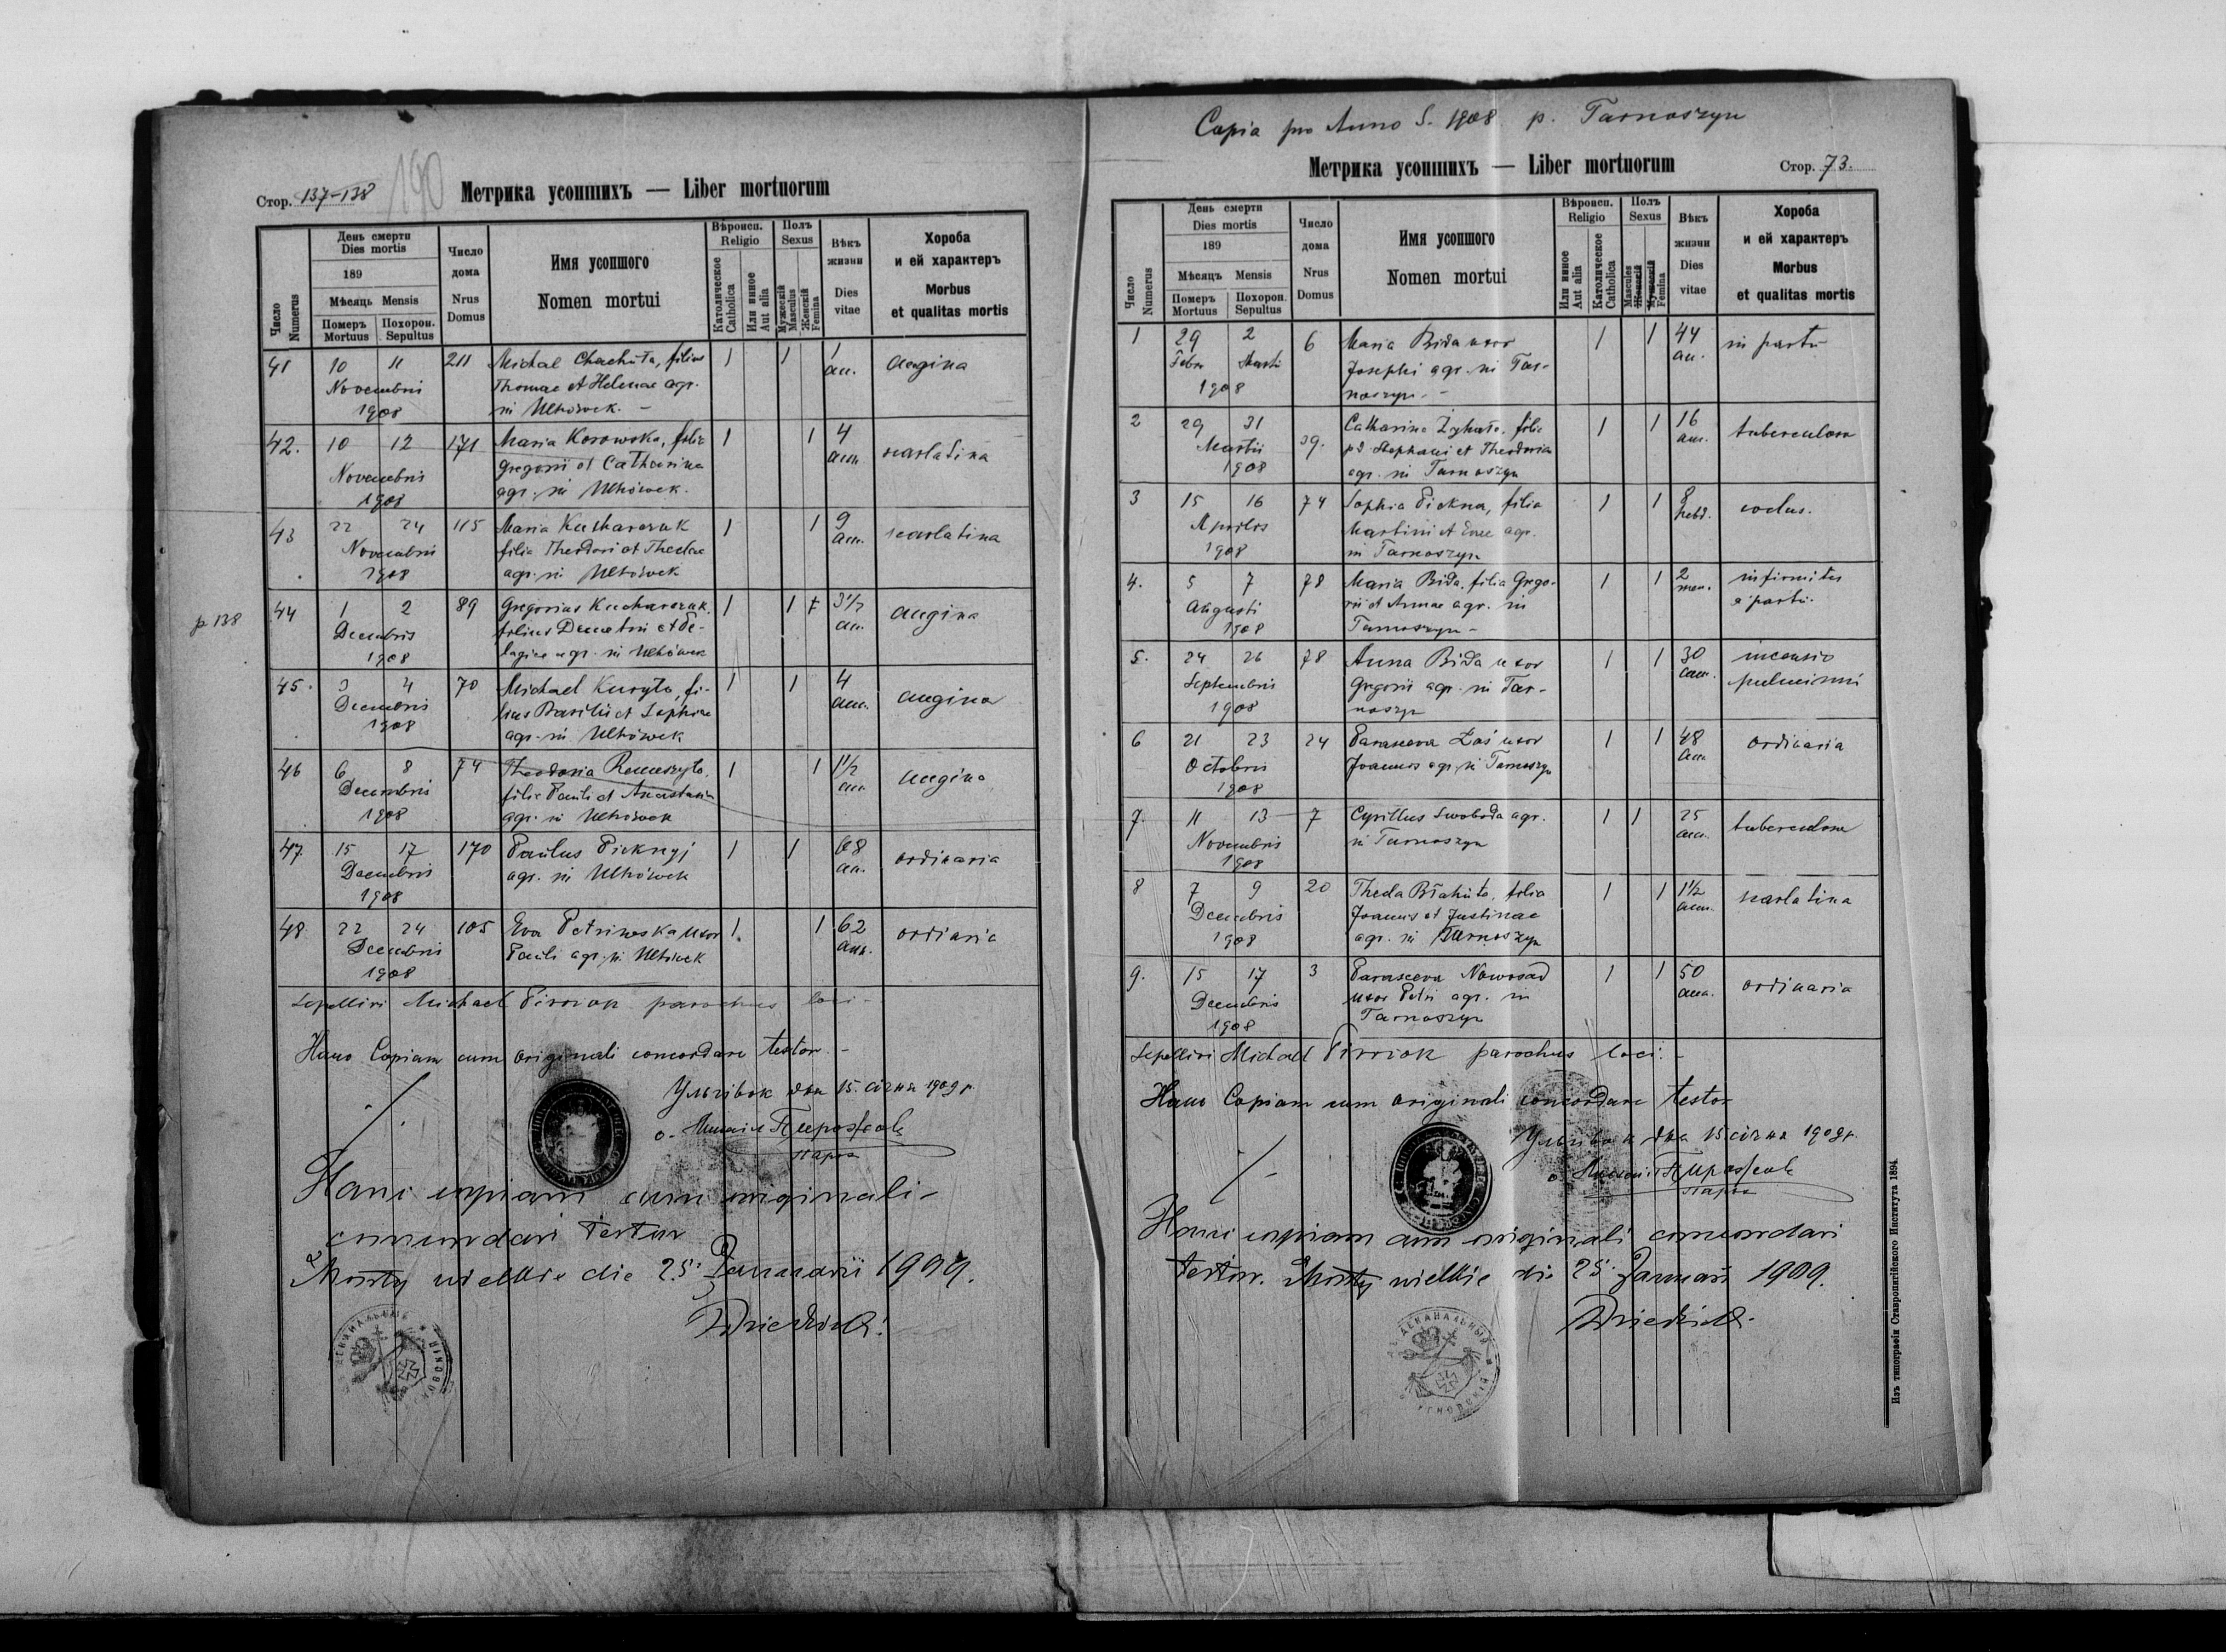 Стор. 137-138
190
Метрика усопшихъ — Liber mortuorum
Число Numerus
День смерти Dies mortis
189
Мѣсяцъ Mensis
Померъ Mortuus
Похорон. Sepultus
Число дома Nrus Domus
Имя усопшого Nomen mortui
Вѣроисп. Religio
Католическое Catholica
Или инное Aut alia
Полъ Sexus
Мужескій Masculus
Женскій Femina
Вѣкъ жизни Dies vitae
Хороба и ей характеръ Morbus et qualitas mortis
41 10 11 211 Michal Chachuta, filius 1 1 1 angina
Novembris Thomae et Helenae agr. an.
1908 in Uhrówek. -
42. 10 12 171 Maria Korowska, filia 1 1 4 scarlatina
Novembris Gregorii et Catharina ann
1908 agr. in Uhrówek.
43 22 24 115 Maria Kucharczuk 1 1 9 scarlatina
Novembris filia Theodori et Theclae ann.
1908 agr. in Uhrówek
p 138
44 1 2 89 Gregorius Kucharczuk, 1 1 3 1/2 angina
Decembris filius Demetrii et Pe- an.
1908 lagiae agr. in Uhrówek
45. 3 4 70 Michael Kuryto, fi- 1 1 4 angina
Decembris lius Basilii et Sophiae ann.
1908 agr. in Uhrówek
46 6 8 74 Theodosia Remeszyto, 1 1 1 1/2 angina
Decembris filia Pauli et Anastasia ann
1908 agr. in Uhrówek
47. 15 17 170 Paulus Pieknyj 1 1 68 ordinaria
Decembris agr. in Uhrówek an.
1908
48 22 24 105 Eva Petriwska uxor 1. 1 62 ordiaria
Decembris Pauli agr. in ann.
1908
Sepelivi Michael parochus loci -
Hanc Copiam cum originali concordare testor. -
дня 15. січня 1909 р.
о.
парох
Hanc copiam cum originali
concordari testor
Mosty wielkie die 25. Januarii 1909.
Copia pro Anno D. 1908 p. Tarnoszyn
Метрика усопшихъ — Liber mortuorum
Стор. 73.
Число Numerus
День смерти Dies mortis
189
Мѣсяцъ Mensis
Померъ Mortuus
Похорон. Sepultus
Число дома Nrus Domus
Имя усопшого Nomen mortui
Вѣроисп. Religio
Или инное Aut alia
Католическое Catholica
Полъ Sexus
Masculus Женскій
Мужескій Femina
Вѣкъ жизни Dies vitae
Хороба и ей характеръ Morbus et qualitas mortis
1 29 2 6 Maria Bida uxor 1 1 44 in partu
Febr Martii Josephi agr. in Tar- an.
1908 noszyn. -
2 29 31 39. Catharina Żyhata, filia 1 1 16 tuberculosa
Martii Stephani et Theodosia ann.
1908 agr. in Tarnoszyn
3 15 16 74 Sophia Piekna, filia 1 1 8
Aprilis Martini et Evae agr. hebd.
1908 in Tarnoszyn
4. 5 7 78 Maria Bida, filia Grego- 1 1 2 infirmitas
Augusti rii et Annae agr. in men. a partu.
1908 Tarnoszyn -
5. 24 26 78 Anna Bida uxor 1 1 30
Septembris Gregorii agr. in Tar- ann.
1908 noszyn
6 21 23 24 Parasceva Łoś uxor 1 1 48 ordinaria
Octobris Joannis agr. in Tarnoszyn ann
1908
7. 11 13 7 Cyrillus Swoboda agr. 1 1 25 tuberculosa
Novembris in Tarnoszyn ann.
1908
8 7 9 20 Thecla Błahuta, filia 1 1 1 1/2 scarlatina
Decembris Joannis et Justinae ann.
1908 agr. in Tarnoszyn
9. 15 17 3 Parasceva Nowosad 1 1 50 ordinaria
Decembris uxor Petri agr. in ann.
1908 Tarnoszyn
Sepelivi Michael parochus loci. -
Hanc Copiam cum originali concordare testor
дня 15 січня 1909 р.
о.
парох
Hanc copiam cum originali concordari
testor. Mosty wielkie die 25. Januarii 1909.
Изъ типографіи Ставропигійского Института 1894